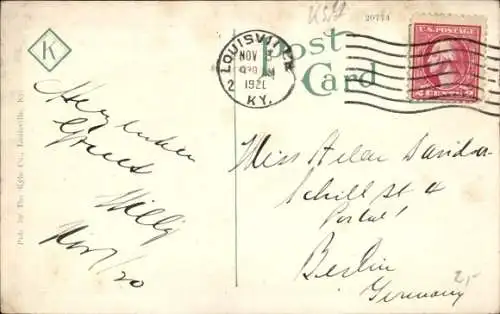 K
Herzlichen
Gruss
Willy
Nov 7/20
Pub. by The Kyle Co., Louisville, Ky.
LOUISVILLE
NOV
1920
2
KY.
20774
Post
Card
U.S. POSTAGE
2 CENTS 2
Miss
Schill St 4
Portal!
Berlin
Germany
2,-